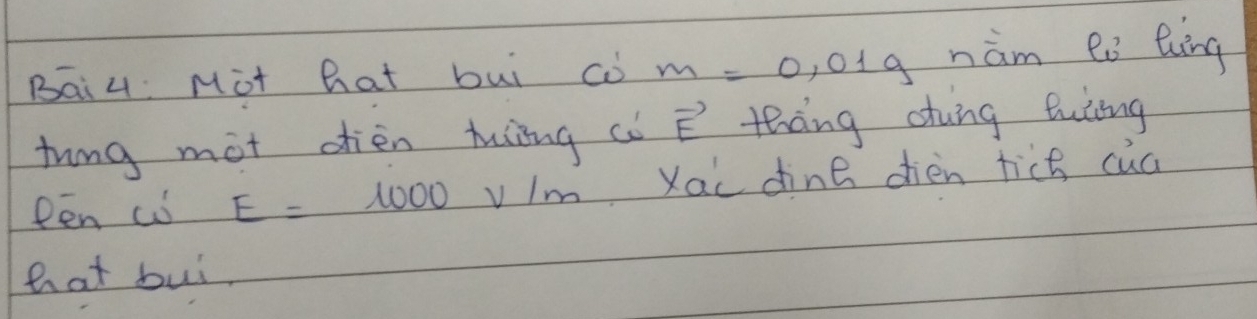 Bài 4: Một hạt bụi có m = 0,01g nằm lơ lửng
trong một điện trường có E⃗ thẳng đứng hướng
lên có E = 1000 V/m. Xác định điện tích của
hạt bụi.